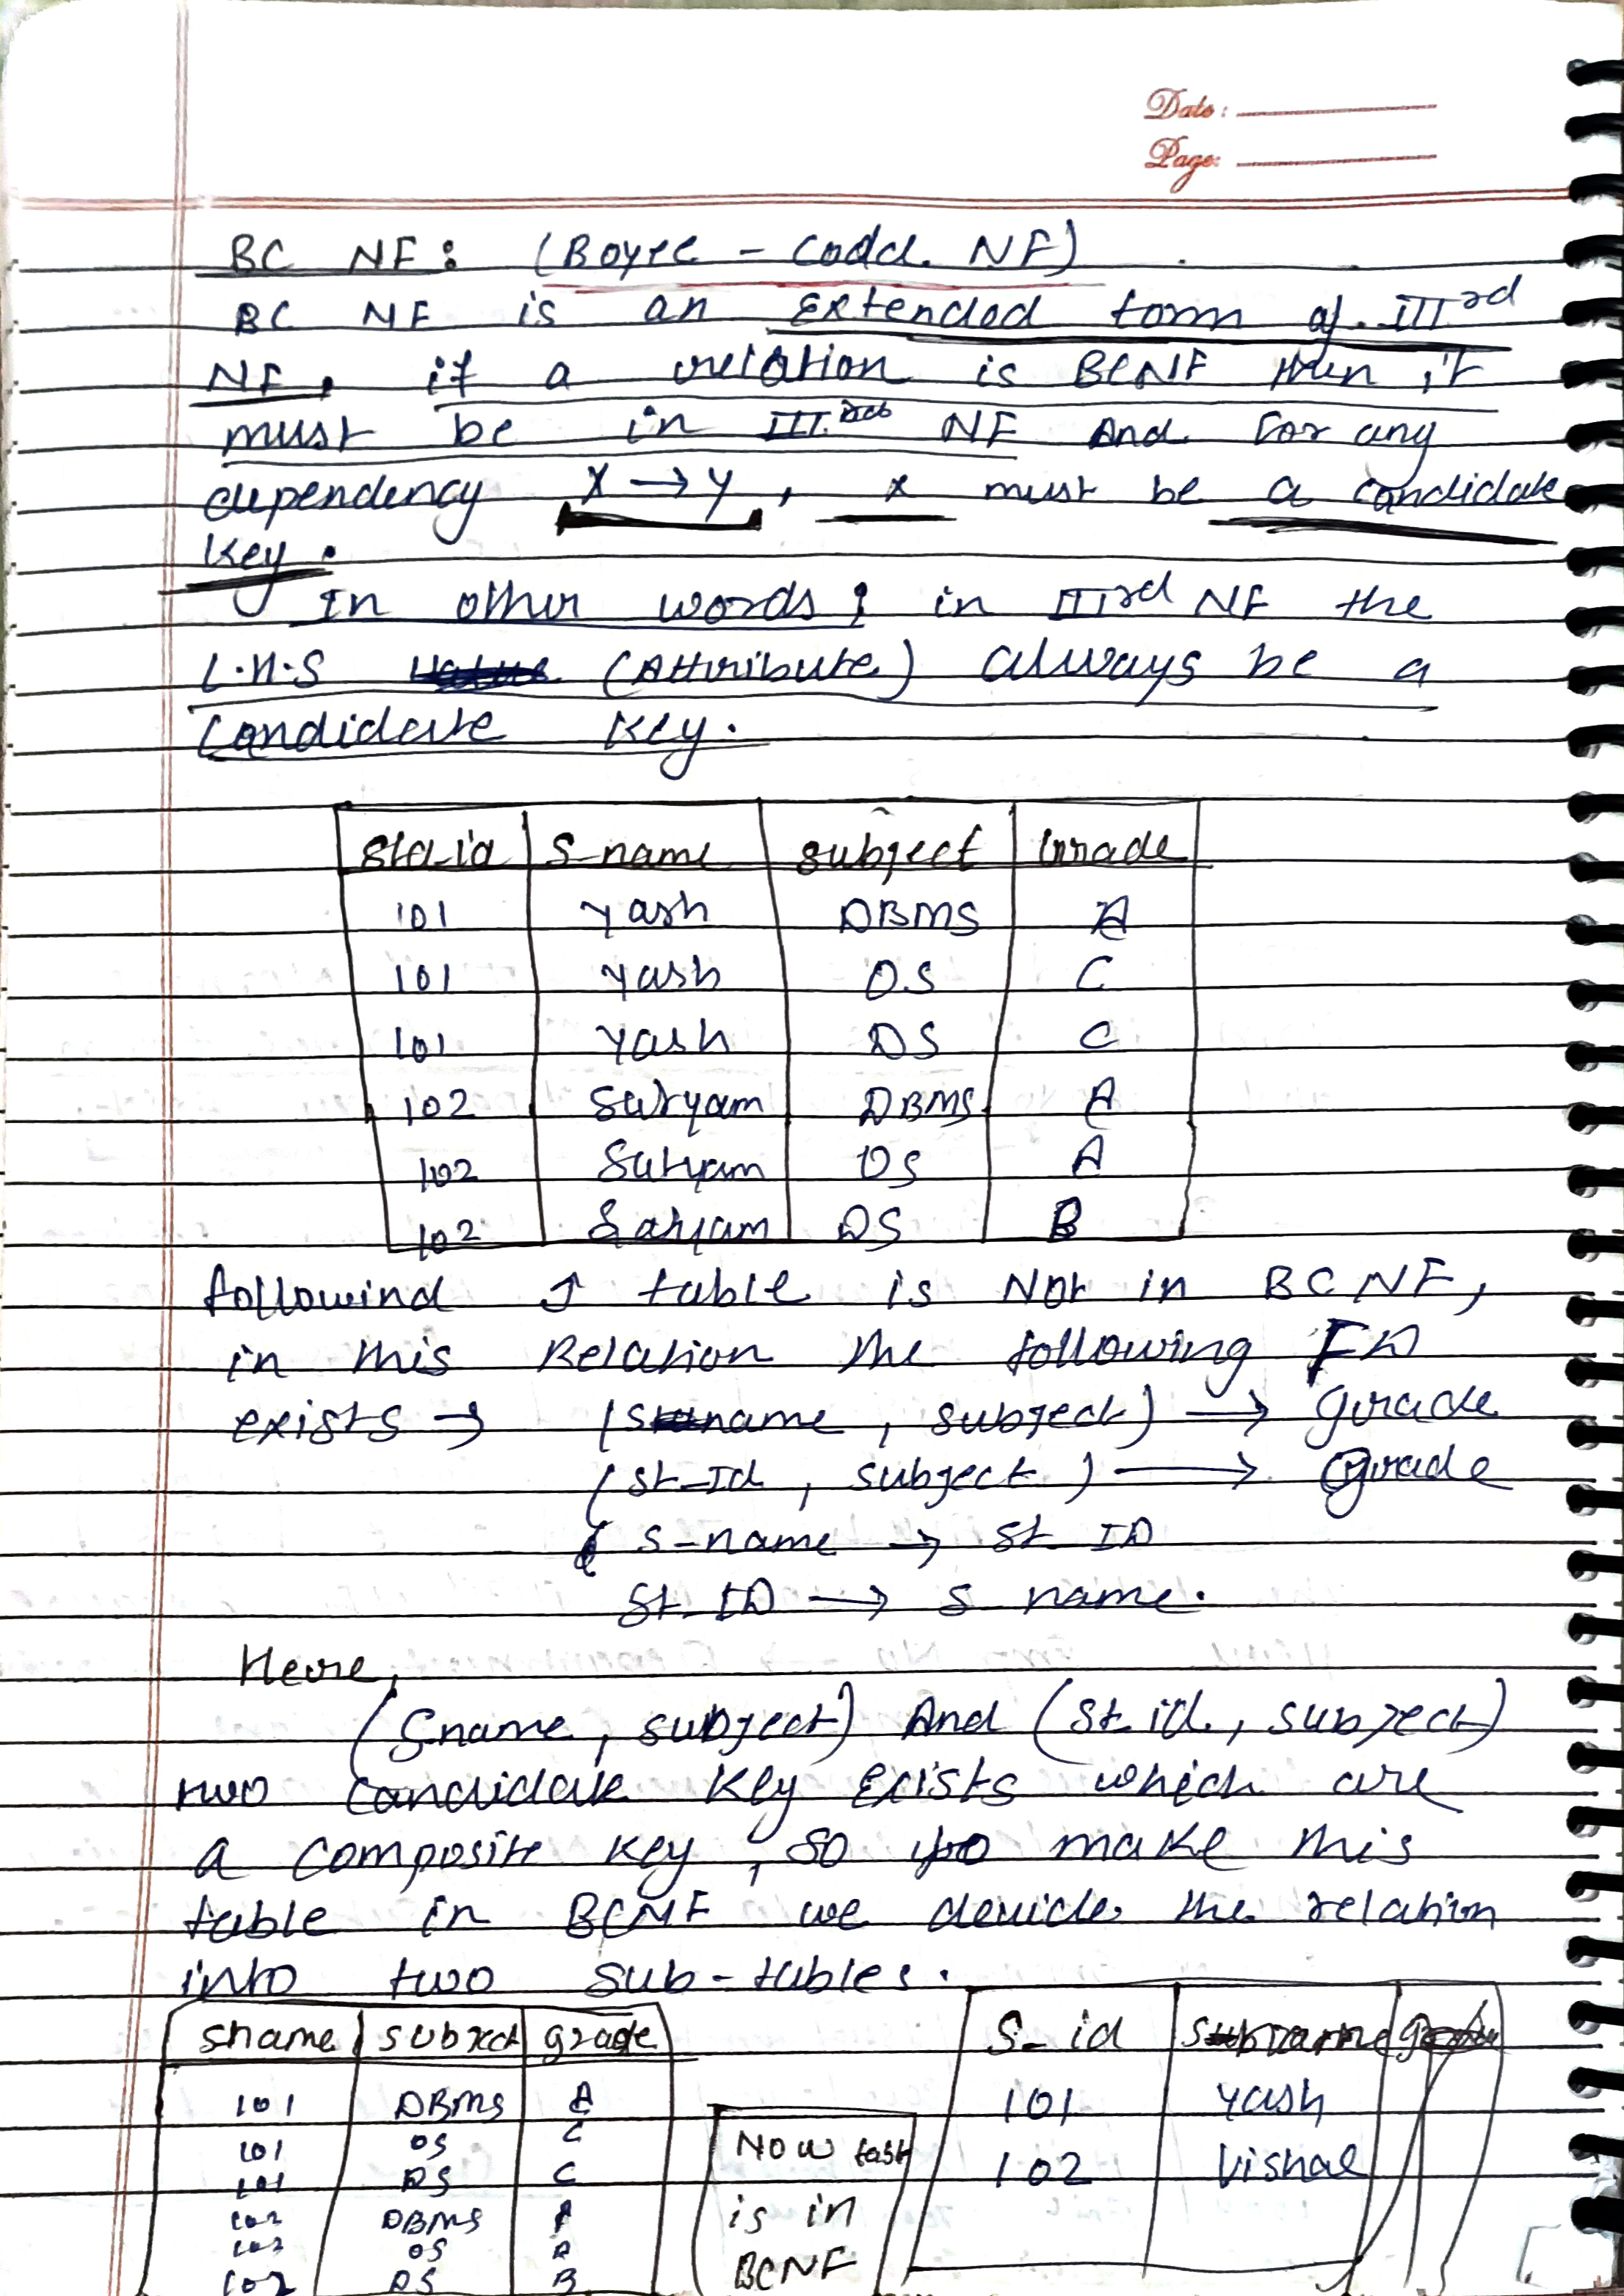 Date:
Page:
BC NF: (Boyce - Codd. NF)
BC NF is an Extended form of IIIrd
NF, if a relation is BCNF then it
must be in IIIrd NF And for any
dependency X → Y, x must be a candidate
key.
In other words; in IIIrd NF the
L.H.S (Attribute) always be a
Candidate Key.
std_id S_name subject Grade
101 Yash DBMS A
101 Yash O.S C
101 Yash DS C
102 Satyam DBMS A
102 Satyam OS A
102 Satyam DS B
followind ↑ table is Not in BCNF,
in this Relation the following FD
exists → (Sname, subject) → grade
(St_Id, subject) → Grade
S-name → St_ID
St_ID → S name.
Here,
(Sname, subject) And (St.id, subject)
two candidate Key Exists which are
a composite key, so to make this
table in BCNF we devide the relation
into two sub-tables.
sname subject grade
101 DBMS A
101 OS C
101 DS C
102 DBMS A
102 OS A
102 DS B
Now
is in
BCNF
S_id Sname
101 Yash
102 Vishal